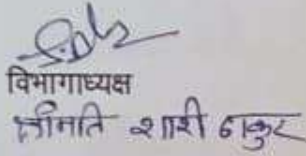 विभागाध्यक्ष
श्रीमति शारी ठाकुर